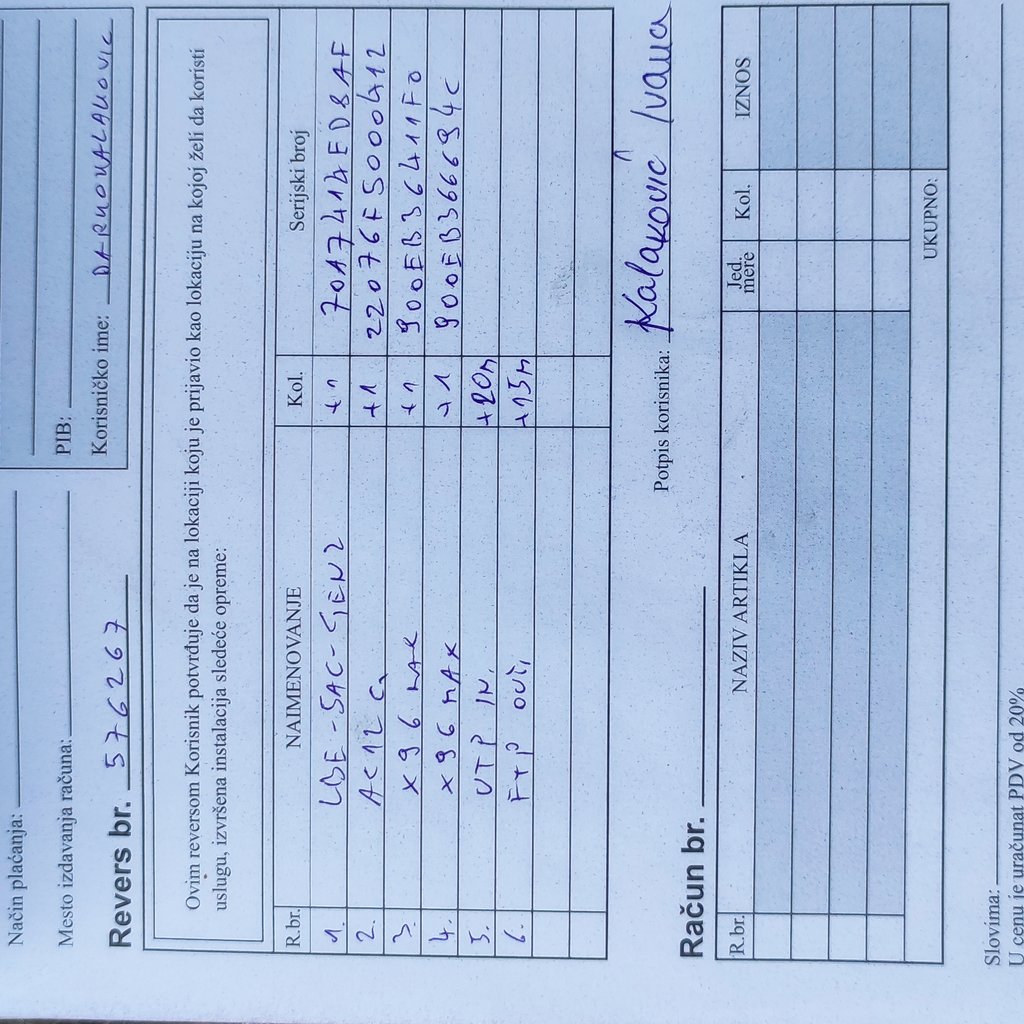 Način plaćanja:
Mesto izdavanja računa:
PIB:
Korisničko ime: DARKOKALAKOVIC
Revers br. 576267
Ovim reversom Korisnik potvrđuje da je na lokaciji koju je prijavio kao lokaciju na kojoj želi da koristi
uslugu, izvršena instalacija sledeće opreme:
R.br. NAIMENOVANJE Kol. Serijski broj
1. LBE-5AC-GEN2 +1 7017414ED8AF
2. AC12 G +1 22076F5000412
3. X96 MAX +1 900EB36411F0
4. X96 MAX +1 900EB366694C
5. UTP IN. +20m
6. FTP OUT. +15m
Potpis korisnika: Kalaković Ivana
Račun br.
R.br. NAZIV ARTIKLA Jed. mere Kol. IZNOS
UKUPNO:
Slovima:
U cenu je uračunat PDV od 20%